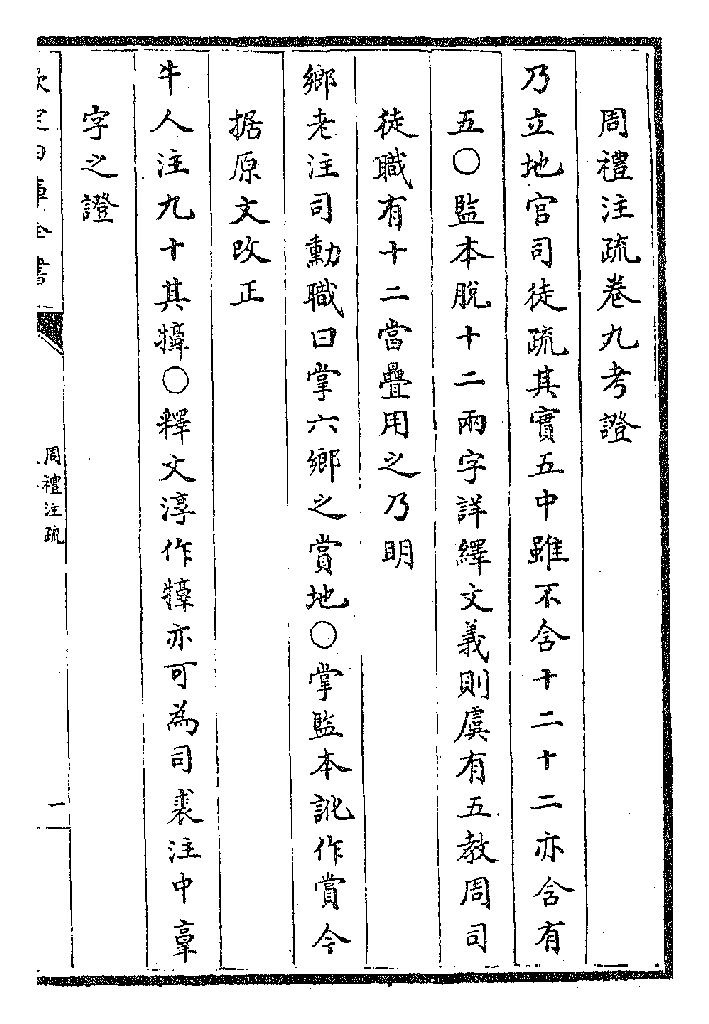 周禮注疏卷九考證
乃立地官司徒疏其實五中雖不含十二十二亦含有
五〇監本脫十二兩字詳繹文義則虞有五教周司
徒職有十二當疊用之乃明
鄉老注司勳職曰掌六鄉之賞地〇掌監本訛作賞今
据原文改正
牛人注九十其犉〇釋文淳作犉亦可為司裘注中𦎫
字之證
欽定四庫全書
周禮注疏
一